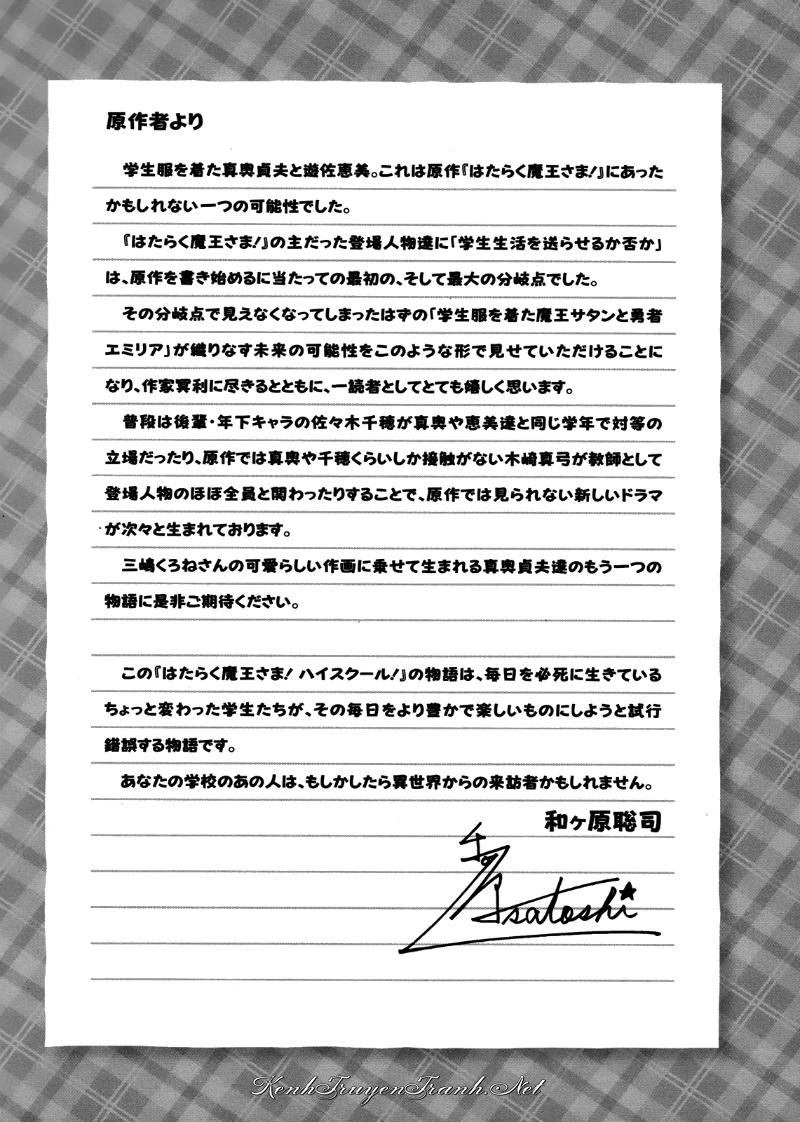 原作者より
学生服を着た真奥貞夫と遊佐恵美。これは原作『はたらく魔王さま!』にあった
かもしれない一つの可能性でした。
『はたらく魔王さま!』の主だった登場人物達に「学生生活を送らせるか否か」
は、原作を書き始めるに当たっての最初の、そして最大の分岐点でした。
その分岐点で見えなくなってしまったはずの「学生服を着た魔王サタンと勇者
エミリア」が織りなす未来の可能性をこのような形で見せていただけることに
なり、作家冥利に尽きるとともに、一読者としてとても嬉しく思います。
普段は後輩・年下キャラの佐々木千穂が真奥や恵美達と同じ学年で対等の
立場だったり、原作では真奥や千穂くらいしか接触がない木崎真弓が教師として
登場人物のほぼ全員と関わったりすることで、原作では見られない新しいドラマ
が次々と生まれております。
三嶋くろねさんの可愛らしい作画に乗せて生まれる真奥貞夫達のもう一つの
物語に是非ご期待ください。
この『はたらく魔王さま! ハイスクール!』の物語は、毎日を必死に生きている
ちょっと変わった学生たちが、その毎日をより豊かで楽しいものにしようと試行
錯誤する物語です。
あなたの学校のあの人は、もしかしたら異世界からの来訪者かもしれません。
和ヶ原聡司
satoshi
KenhTruyenTranh.Net